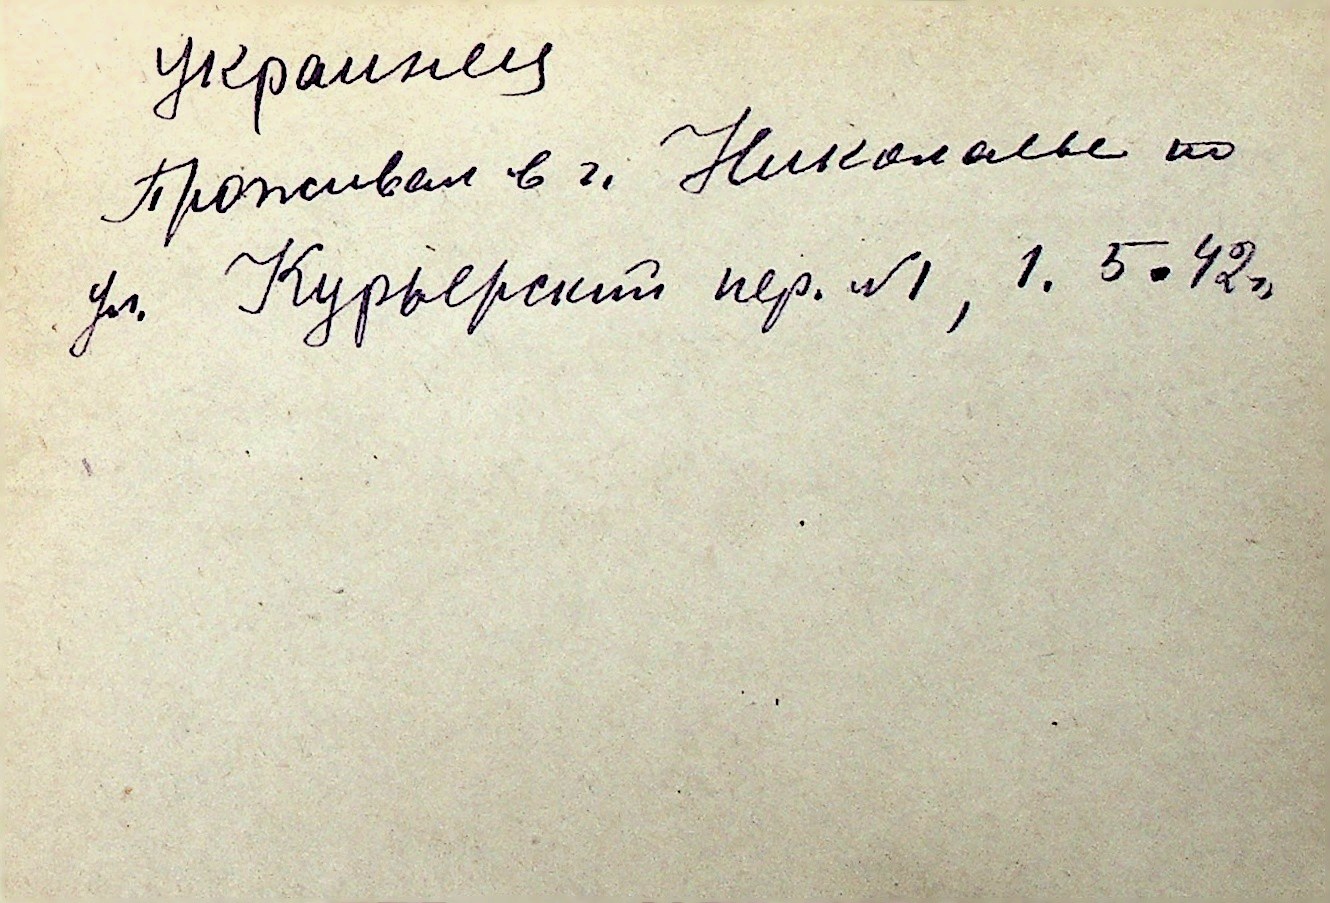 украинец
Проживал в г. Николаеве по
ул. Курьерский пер. №1, 1.5.42г.